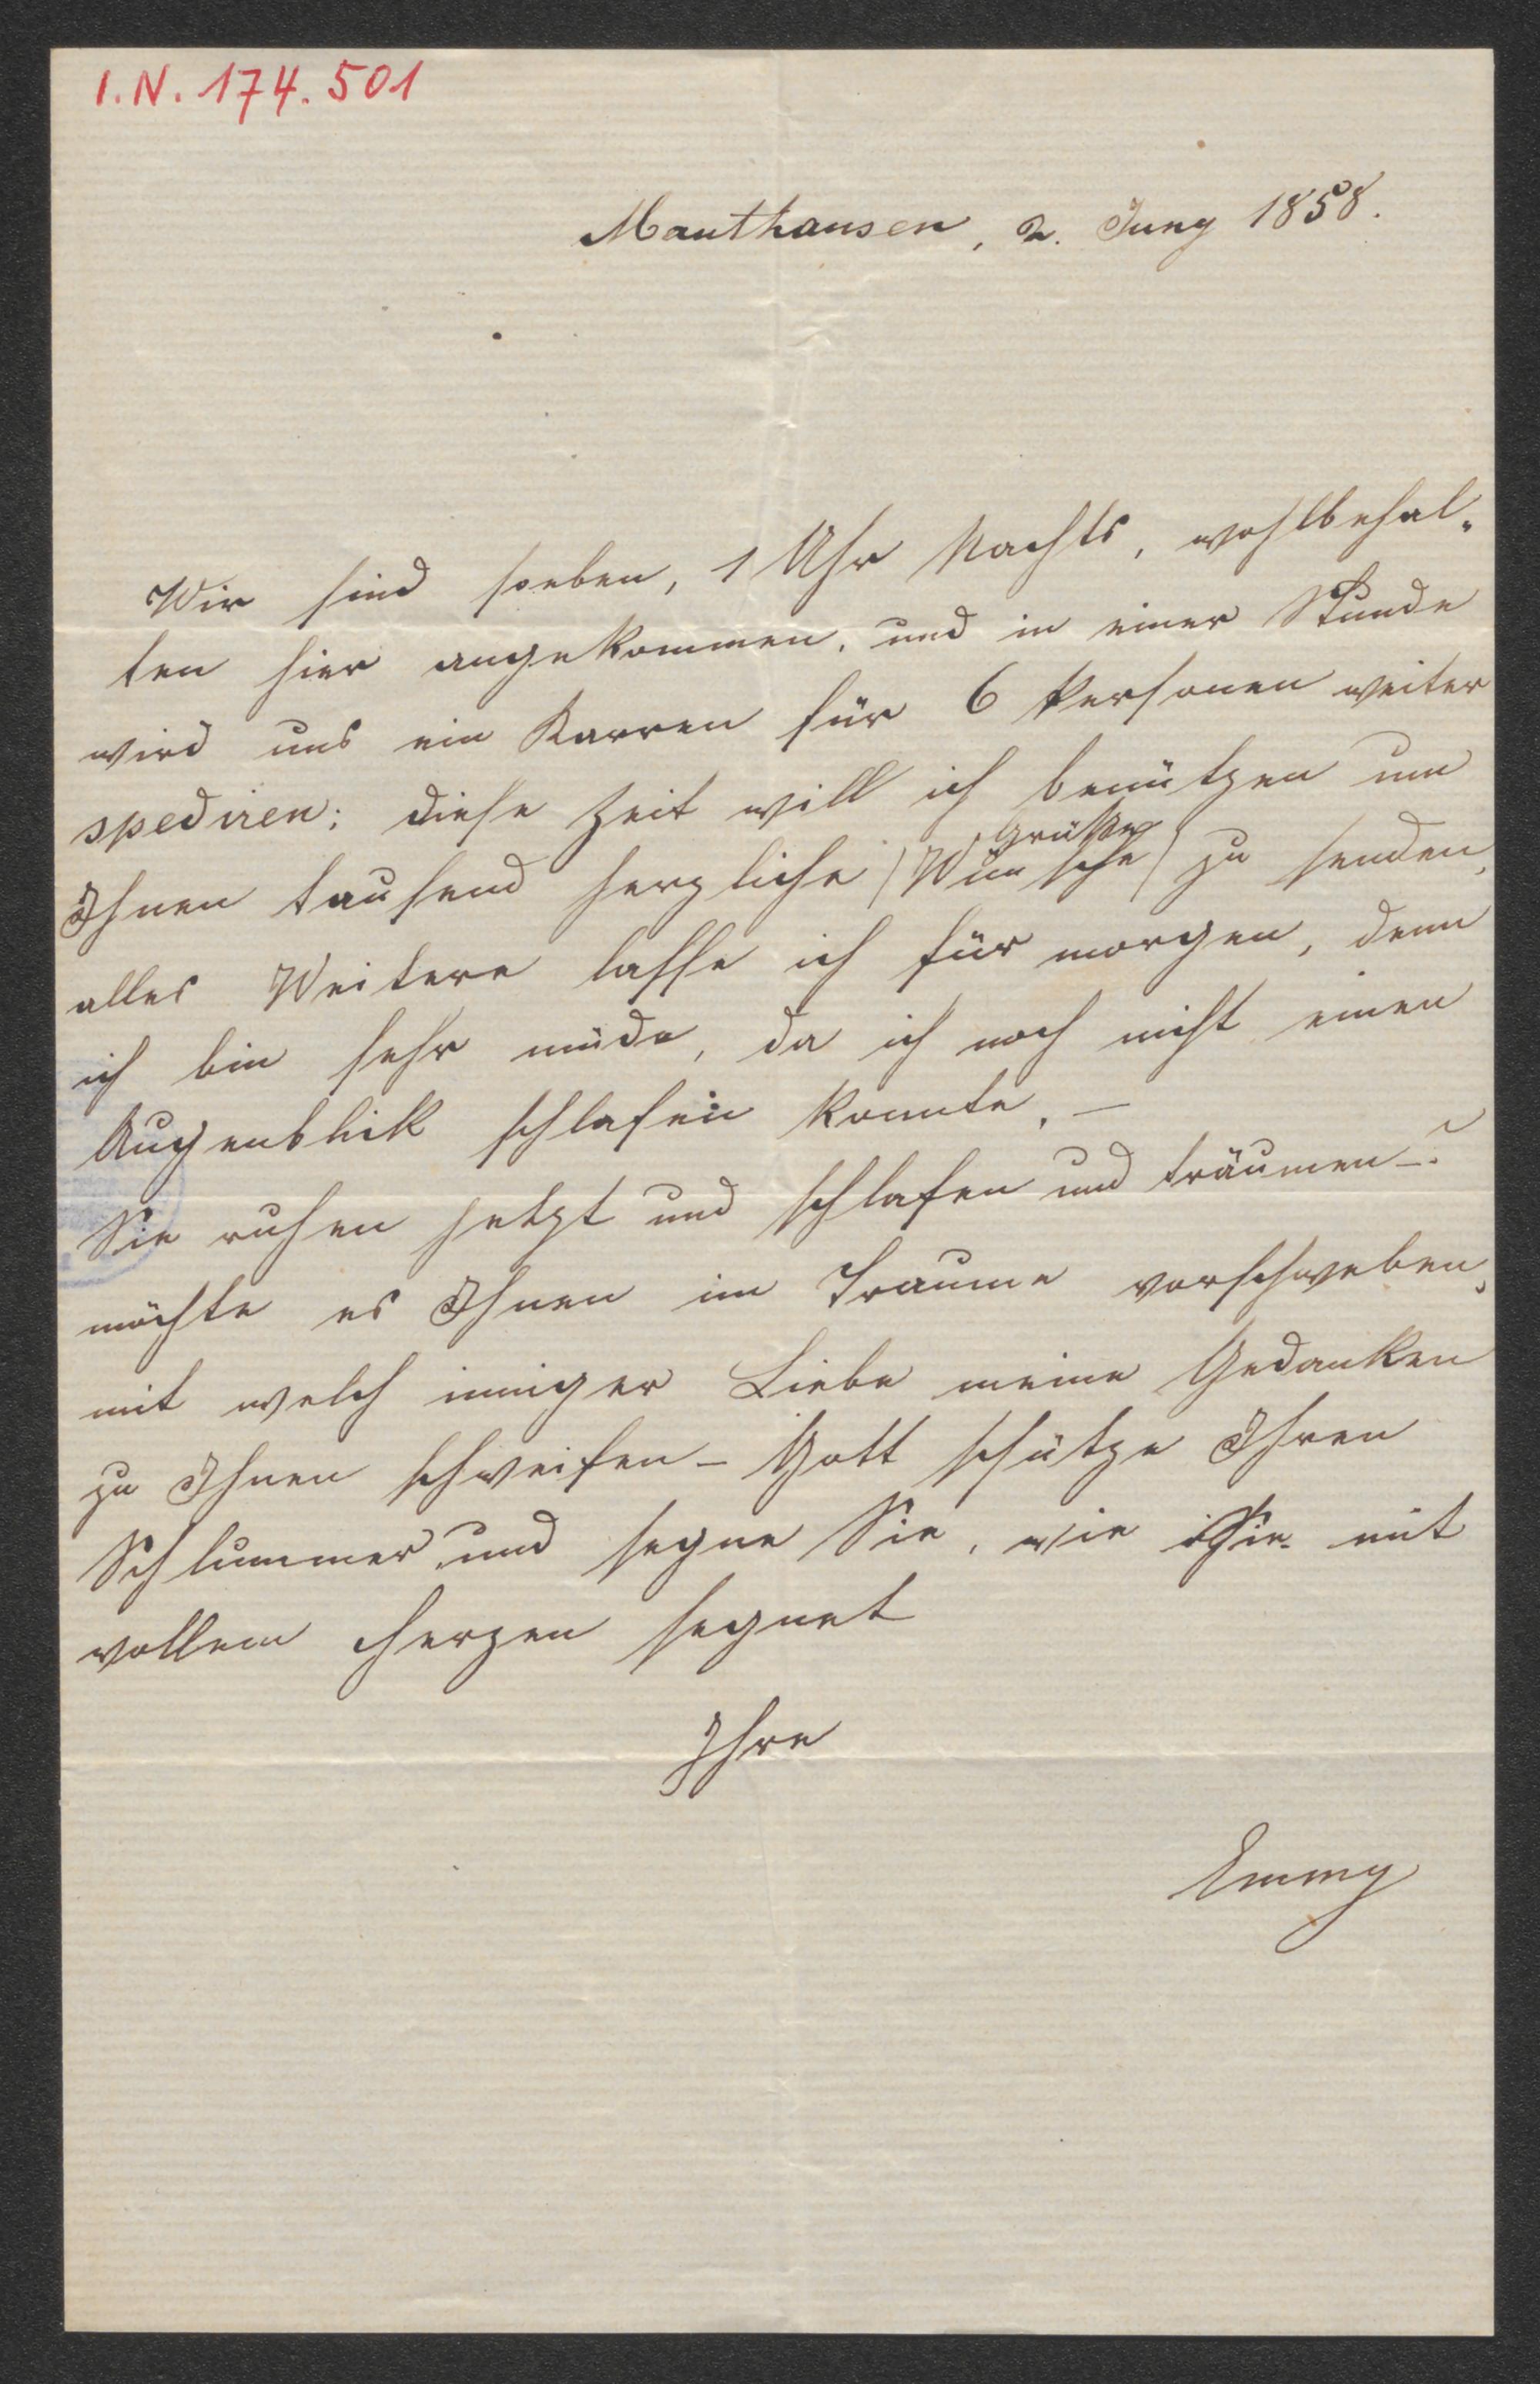 I.N. 174.501
Mauthausen, 2. Juny 1858.
Wir sind soeben, 1 Uhr Nachts, wohlbehal-
ten hier angekommen, und in einer Stunde
wird uns ein Karren für 6 Personen weiter
spediren; diese Zeit will ich benützen um
Grüße
Ihnen tausend herzliche (Wünsche) zu senden,
alles Weitere lasse ich für morgen, denn
ich bin sehr müde, da ich noch nicht einen
Augenblik schlafen konnte. –
Sie ruhen jetzt und schlafen und träumen –?
möchte es Ihnen im Traume vorschweben,
mit welch inniger Liebe meine Gedanken
zu Ihnen schweifen – Gott schütze Ihren
Schlummer und segne Sie, wie Sie mit
vollem Herzen segnet
Ihre
Emmy